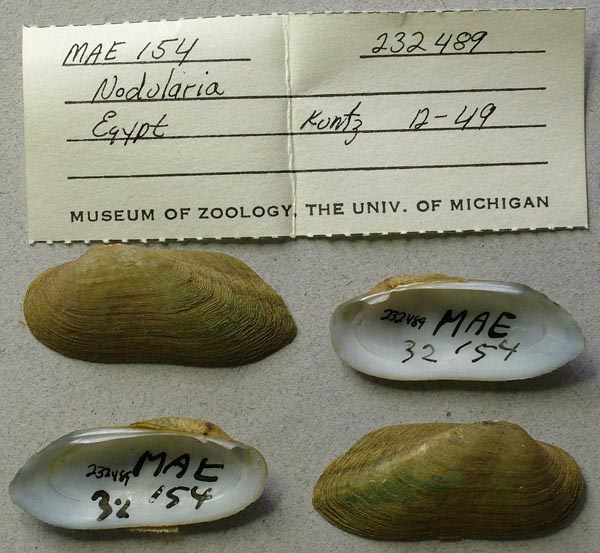 MAE 154 232489
Nodularia
Egypt Kuntz 12-49
MUSEUM OF ZOOLOGY, THE UNIV. OF MICHIGAN
232489 MAE
32 154
232489 MAE
32 154